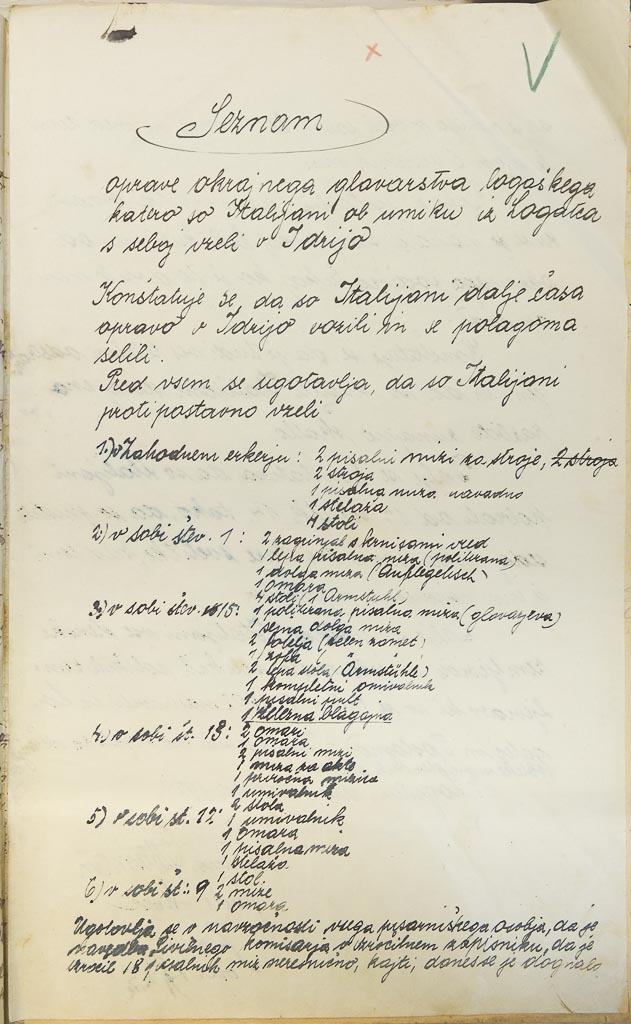 Seznam
oprave okrajnega glavarstva logaškega
katero so Italijani ob umiku iz Logatca
s seboj vzeli v Idrijo
Konstatuje se, da so Italijani dalje časa
opravo v Idrijo vozili in se polagoma
selili.
Pred vsem se ugotavlja, da so Italijani
protipostavno vzeli
1.) v Zahodnem erkerju: 2 pisalni mizi za stroje, 2 stroja
2 stroja
1 pisalna miza navadna
1 stelaža
4 stoli
2) v sobi štev. 1: 2 zagrinjal s krnisami vred
1 lepa pisalna miza (politirana)
1 dolga miza (Auflegetisch)
1 omara
4 stoli (1 Armstuhl)
3.) v sobi štev. 15: 1 politirana pisalna miza (glavarjeva)
1 lepa dolga miza
2 fotelja (zelen žamet)
1 zofa
2 lepa stola (Armstühle)
1 kompletni umivalnik
1 pisalni pult
1 železna blagajna
4.) v sobi št. 13: 2 omari
1 omara
2 pisalni mizi
1 miza za akte
1 priročna mizica
1 umivalnik
2 stola
5) v sobi št. 12: 1 umivalnik
1 omara
1 pisalna miza
1 stelaža
1 stol
6) v sobi št: 9 2 mize
1 omara
Ugotovlja se v navzočnosti vsega pisarniškega osobja, da je
navedba Civilnega komisarja v izročilnem zapisniku, da je
izročil 18 pisalnih miz neresnično, kajti, danes se je dognalo